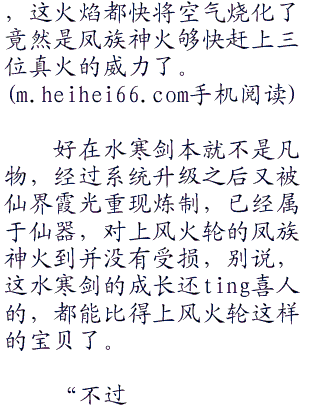 ，这火焰都快将空气烧化了
竟然是凤族神火够快赶上三
位真火的威力了。
(m.heihei66.com手机阅读)
好在水寒剑本就不是凡
物，经过系统升级之后又被
仙界霞光重现炼制，已经属
于仙器，对上风火轮的凤族
神火到并没有受损，别说，
这水寒剑的成长还ting喜人
的，都能比得上风火轮这样
的宝贝了。
“不过